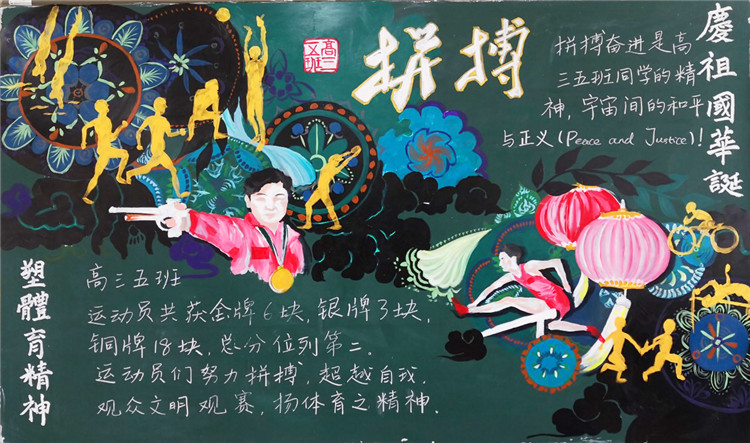 高三
五班
拼搏
慶祖國華誕
拼搏奋进是高
三五班同学的精
神,宇宙间的和平
与正义(Peace and Justice)!
塑體育精神
高三五班
运动员共获金牌6块,银牌3块,
铜牌18块,总分位列第二。
运动员们努力拼搏,超越自我,
观众文明观赛,扬体育之精神。